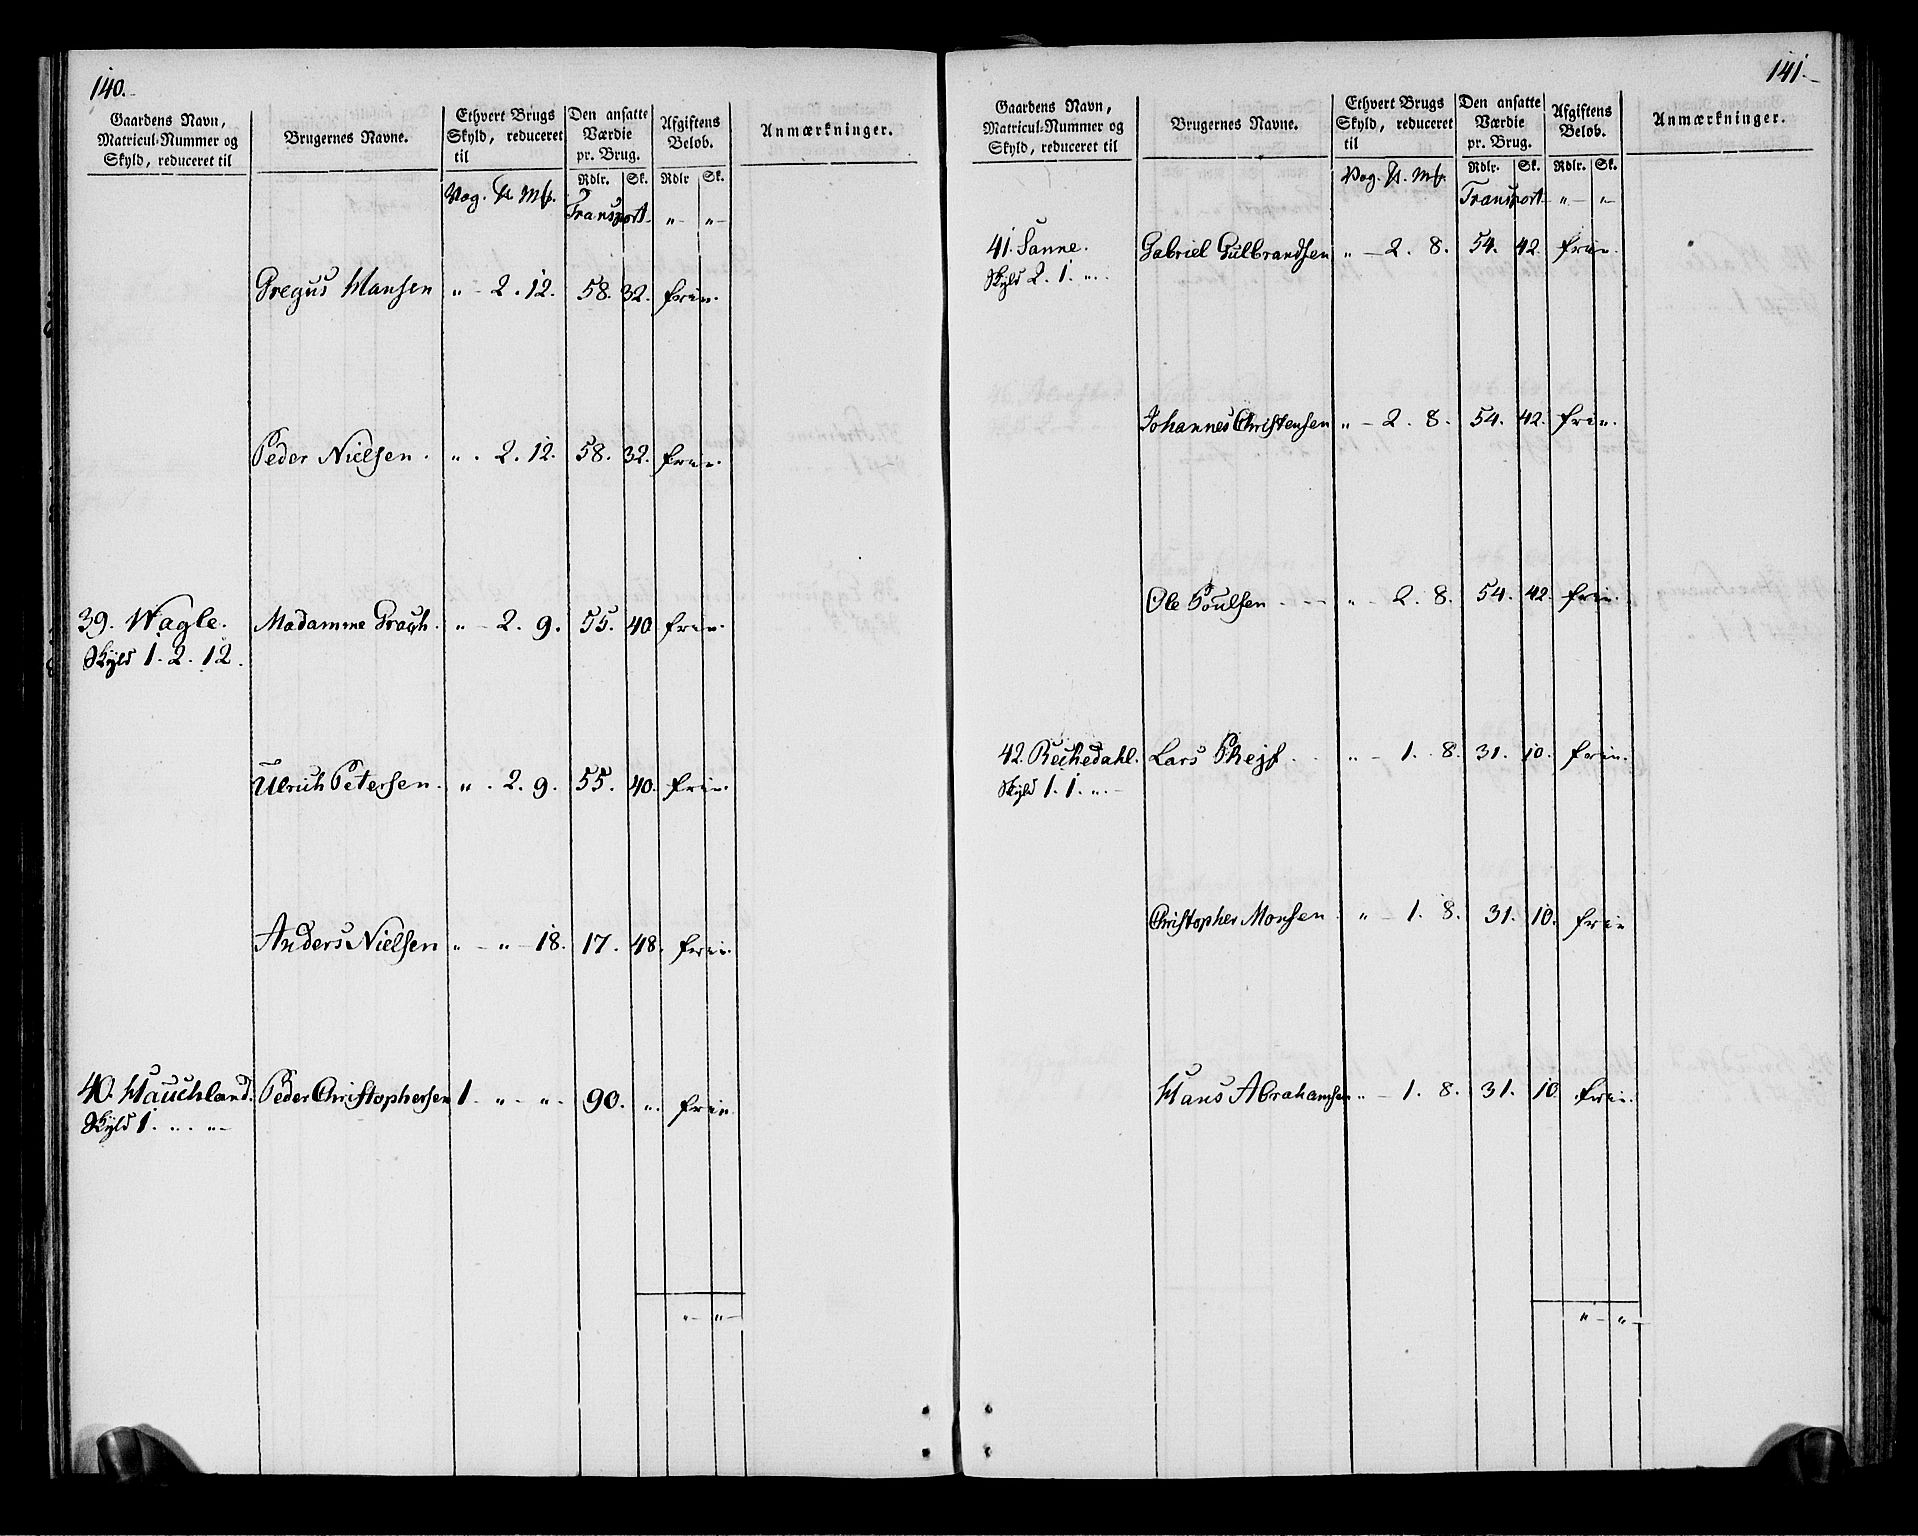 140.
Gaardens Navn, Matricul-Nummer og Skyld, reduceret til | Brugernes Navne. | Ethvert Brugs Skyld, reduceret til | Den ansatte Værdie pr. Brug. | Afgiftens Beløb. | Anmærkninger.
Rdlr. Sk. Rdlr Sk.
Vog. Mk. Transport „ – „ –
Gregus Hansen „ – 2. 12. 58. 32. frie.
Peder Nielsen. „ . 2. 12. 58. 32. frie.
39. Wagle. Madamme „ – 2. 9. 55. 40 frie.
Skyld 1. 2. 12.
Ulrich Petersen. „ . 2. 9. 55. 40. frie.
Anders Nielsen „ – „ – 18. 17. 48. frie.
40. Hauchland. Peder Christophersen 1. „ – „ – 90. „. frie.
Skyld 1. „. „ –
„ – „ –
141.
Gaardens Navn, Matricul-Nummer og Skyld, reduceret til | Brugernes Navne. | Ethvert Brugs Skyld, reduceret til | Den ansatte Værdie pr. Brug. | Afgiftens Beløb. | Anmærkninger.
Rdlr. Sk. Rdlr. Sk.
Vog. Mk. Transport „ – „ –
41. Sanne. Gabriel Gulbrandsen „ – 2. 8. 54. 42. frie.
Skyld 2. 1. „.
Johannes Christensen „ – 2. 8. 54. 42. frie.
Ole Poulsen „ – 2. 8. 54. 42. frie.
42. Rechedahl. Lars „ – 1. 8. 31. 10. frie.
Skyld 1. 1. „. –
Christopher Monsen „ – 1. 8. 31. 10. frie
Hans Abrahamsen „ – 1. 8. 31. 10 frie.
„ – „ –